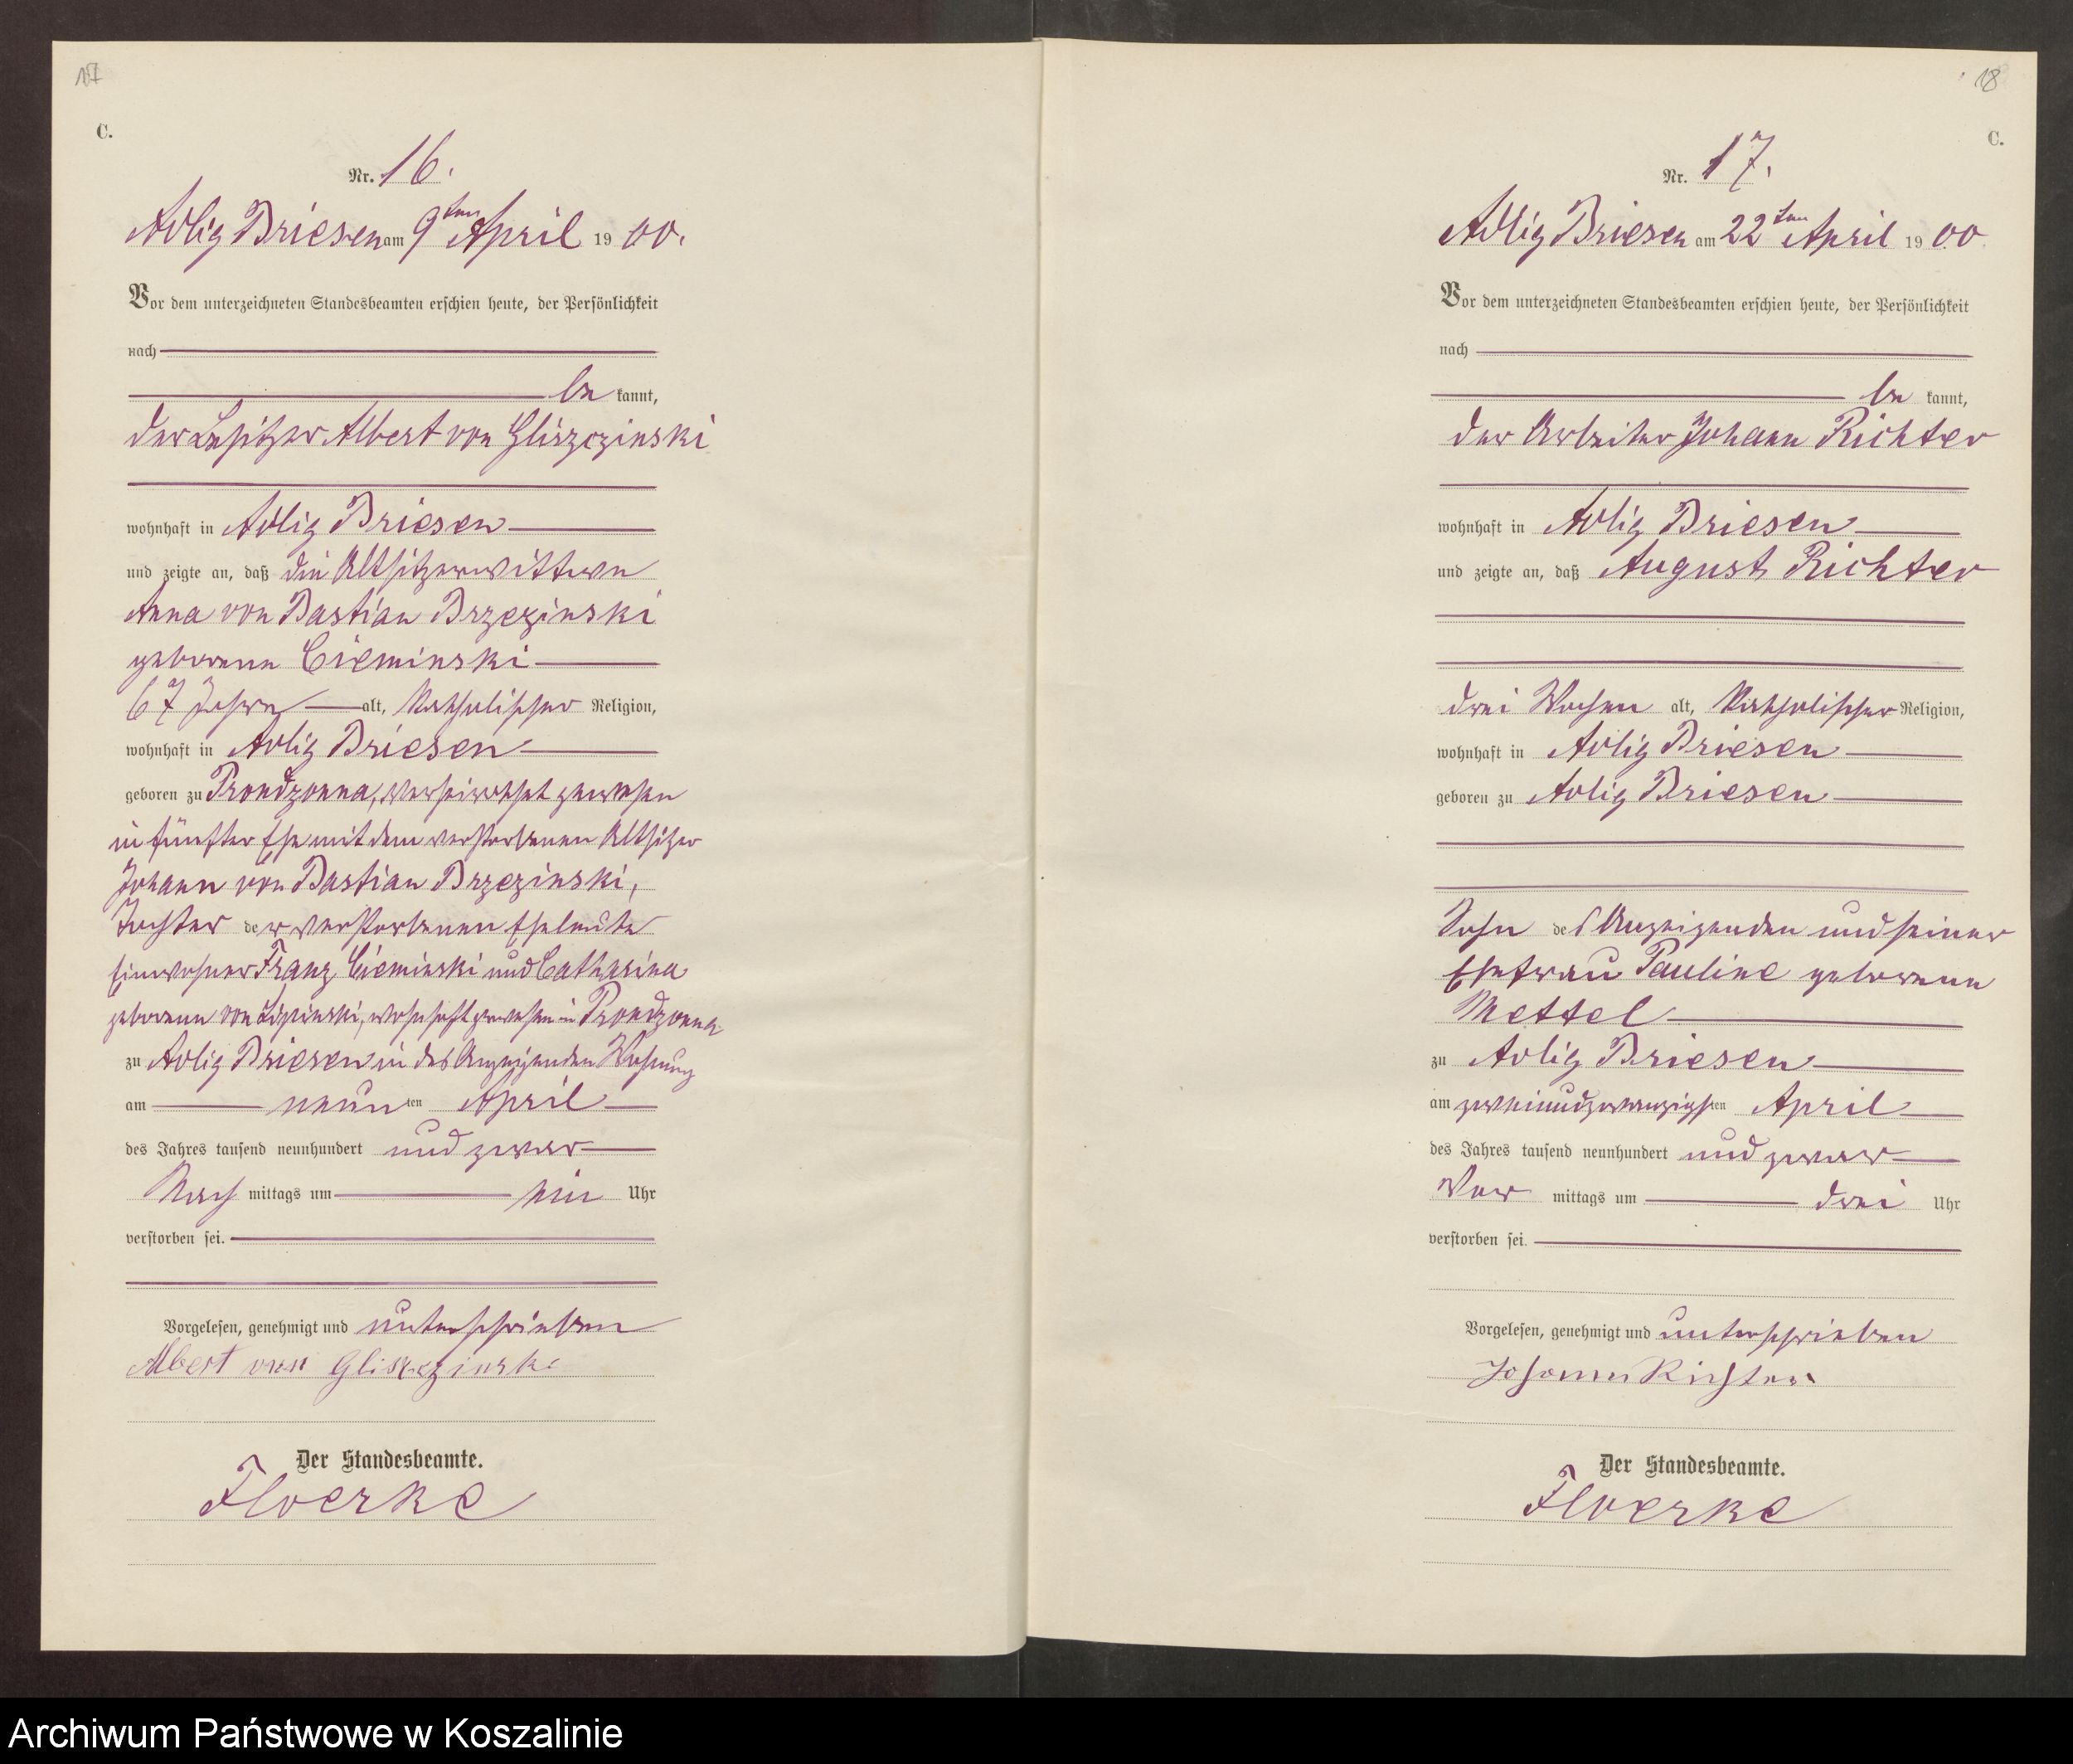 17
C.
Nr. 16.
Adlig Briesen am 9ten April 1900.
Vor dem unterzeichneten Standesbeamten erschien heute, der Persönlichkeit
nach
be kannt,
der Besitzer Albert von Gliszczinski
wohnhaft in Adlig Briesen
und zeigte an, daß die Altsitzerwittwe
Anna von Bastian Brzezinski
geborene Cieminski
67 Jahre alt, katholischer Religion,
wohnhaft in Adlig Briesen
geboren zu Prondzonna, verheirathet gewesen
in fünfter Ehe mit dem verstorbenen Altsitzer
Johann von Bastian Brzezinski,
Tochter der verstorbenen Eheleute
Einwohner Franz Cieminski und Catharina
geborene von Lipinski, wohnhaft gewesen in Prondzonna
zu Adlig Briesen in des Anzeigenden Wohnung
am neunten April
des Jahres tausend neunhundert und zwar
Nach mittags um ein Uhr
verstorben sei.
Vorgelesen, genehmigt und unterschrieben
Albert von Gliszczinski
Der Standesbeamte.
Floerke
18
C.
Nr. 17.
Adlig Briesen am 22ten April 1900
Vor dem unterzeichneten Standesbeamten erschien heute, der Persönlichkeit
nach
be kannt,
der Arbeiter Johann Richter
wohnhaft in Adlig Briesen
und zeigte an, daß August Richter
drei Wochen alt, katholischer Religion,
wohnhaft in Adlig Briesen
geboren zu Adlig Briesen
Sohn des Anzeigenden und seiner
Ehefrau Pauline geborene
Mettel
zu Adlig Briesen
am zweiundzwanzigsten April
des Jahres tausend neunhundert und zwar
Vor mittags um drei Uhr
verstorben sei.
Vorgelesen, genehmigt und unterschrieben
Johann Richter
Der Standesbeamte.
Floerke
Archiwum Państwowe w Koszalinie